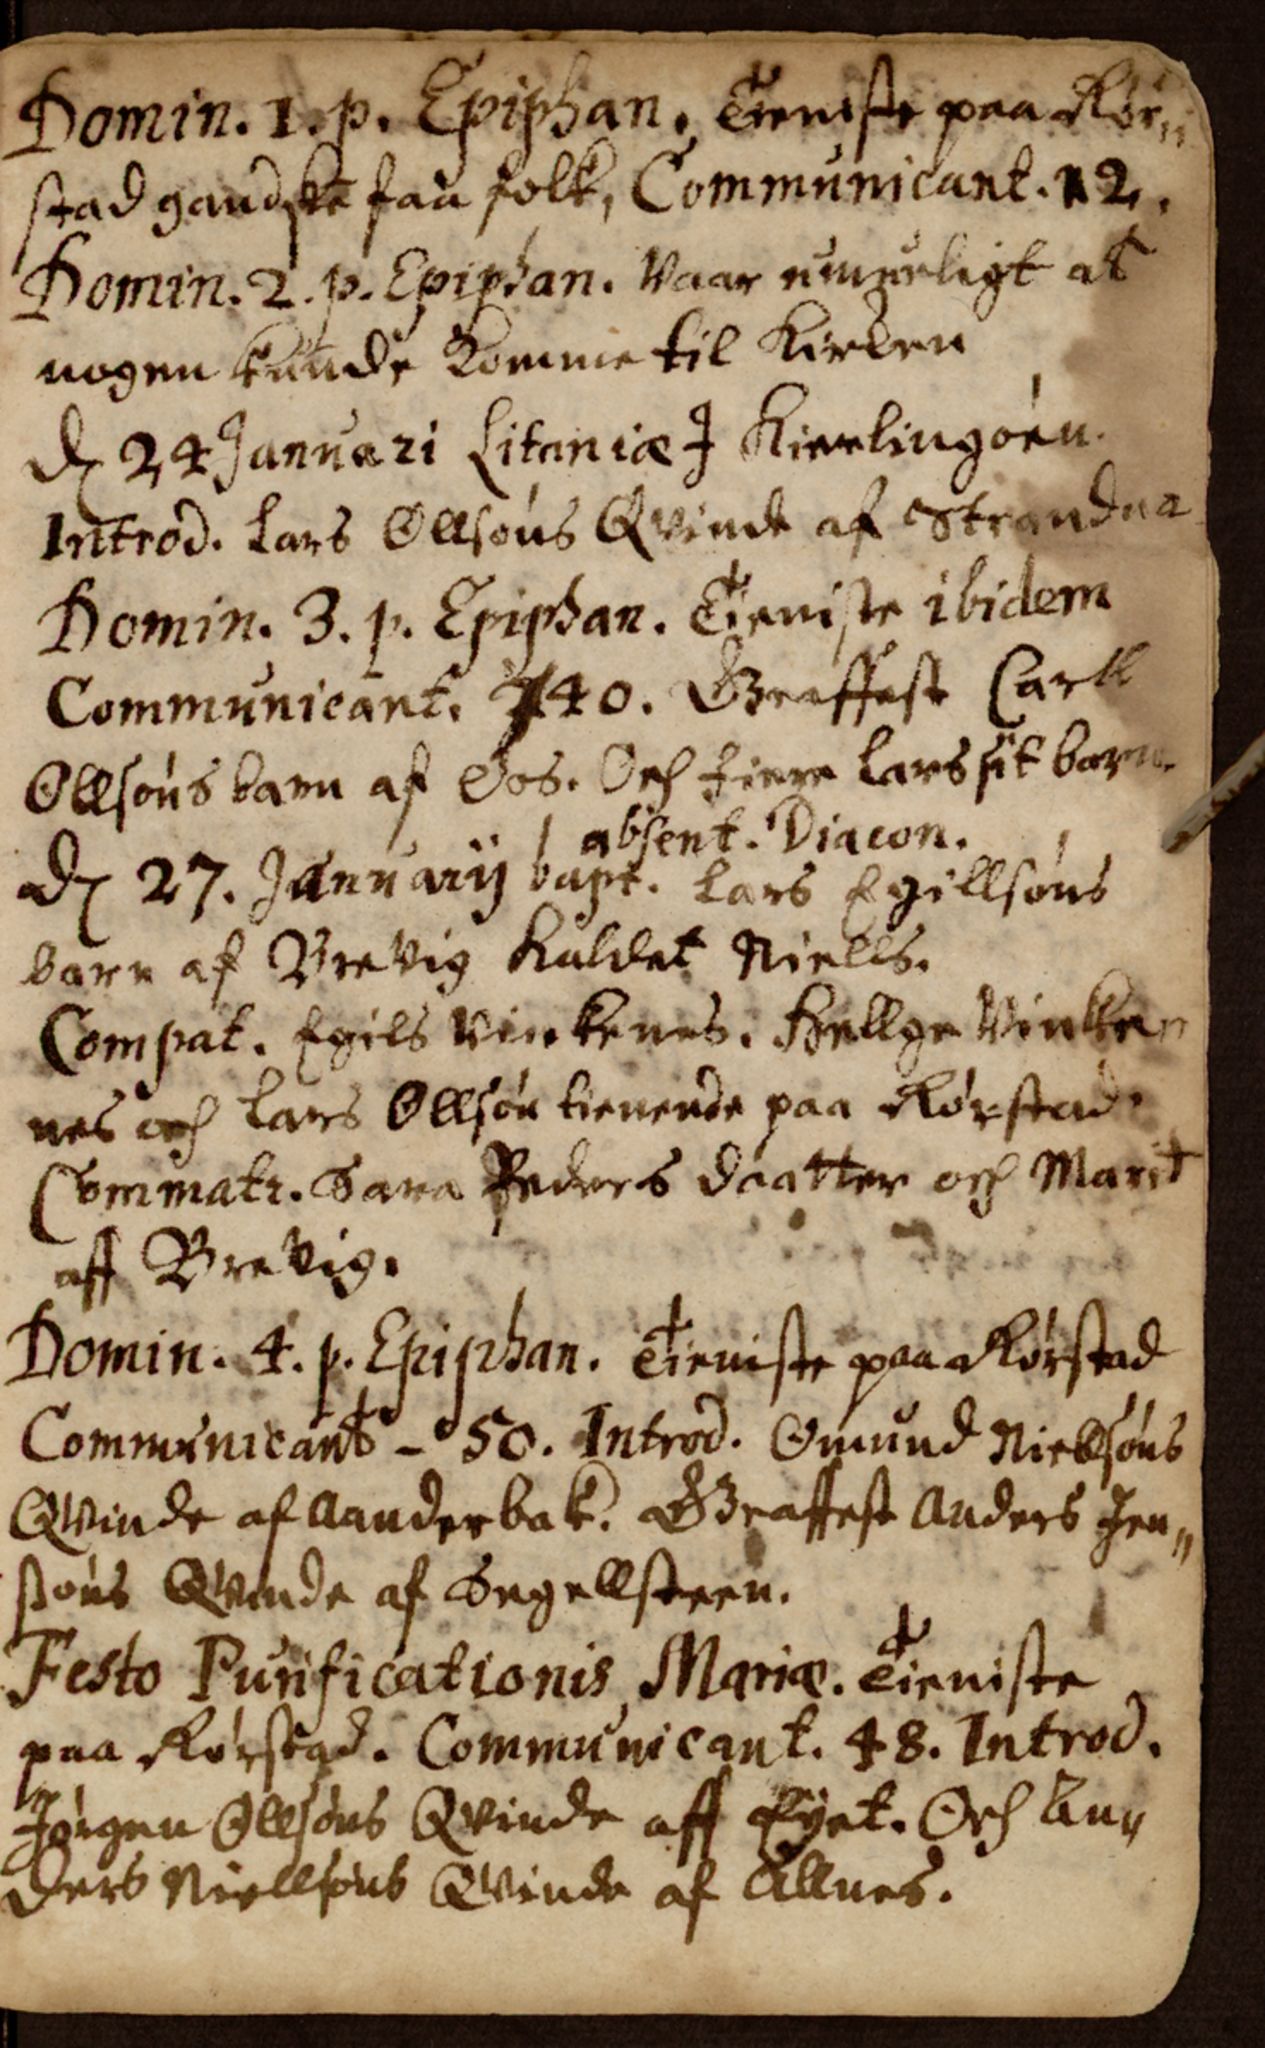 Domin. 1. p. Epiphan. Tieniste paa Rør„
stad gandske faa folk, Communicant. 12.
Domin. 2. p. Epiphan. Vaar umueligt at
nogen kunde komme til Kirken
d. 24 Januari Litaniæ I Kierlingøen.
Introd. Lars Ollsøns Qvinde af Strandna
Domin. 3. p. Epiphan. Tieniste ibidem
Communicant. 140. Graffest Carll
Ollsøns barn af Oos. Och Lars sit barn.
absent. Diacon.
d. 27. Januarij bapt. Lars Egillsøns
barn af Brevig Kaldet Niells.
Compat. Egils Vinkenes. Hellge Vinken
nes och Lars Ollsøn tienende paa Rørstad.
Commatr. Sara Peders daatter och Marit
aff Brevig.
Domin. 4. p. Epiphan. Tieniste paa Rørstad
Communicant - 50. Introd. Omund Niellsøns
Qvinde af Aanderbak. Graffest Anders Jen„
søns Qvinde af Segellsteen.
Festo Purificationis Mariæ. Tieniste
paa Rørstad. Communicant. 48. Introd.
Jørgen Ollsøns Qvinde aff Eyet. Och An„
ders Niellsøns Qvinde af Allnes.